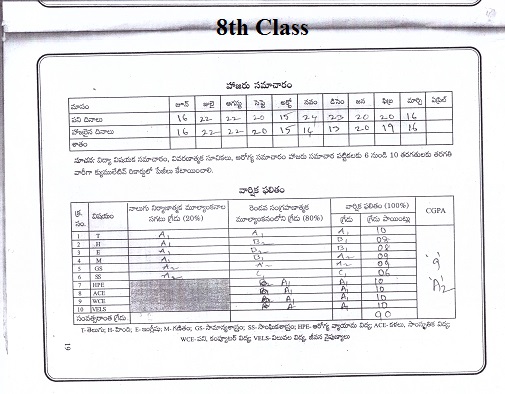 8th Class
హాజరు సమాచారం
మాసం జూన్ జులై ఆగస్టు సెప్టె అక్టో నవం డిసెం జన ఫిబ్ర మార్చి ఏప్రిల్
పని దినాలు 16 22 22 20 15 24 23 20 20 16
హాజరైన దినాలు 16 22 22 20 15 14 13 20 19 16
శాతం
సూచన: విద్యా విషయక సమాచారం, వివరణాత్మక సూచికలు, ఆరోగ్య సమాచారం హాజరు సమాచార పట్టికలకు 6 నుండి 10 తరగతులకు తరగతి
వారీగా క్యుములేటివ్ రికార్డులో పేజీలు కేటాయించాలి.
వార్షిక ఫలితం
క్ర. సం. విషయం నాలుగు నిర్మాణాత్మక మూల్యాంకనాల సగటు గ్రేడు (20%) రెండవ సంగ్రహణాత్మక మూల్యాంకనంలోని గ్రేడు (80%) వార్షిక ఫలితం (100%) CGPA
గ్రేడు గ్రేడు పాయింట్లు
1 T A1 A1 A1 10
2 H A1 B2 B1 08
3 E A1 B2 B1 08
4 M A1 09
5 GS 09
6 SS C1 06
7 HPE A1 A1 10
8 ACE A1 A1 10
9 WCE A1 A1 10
10 VELS A1 A1 10
సంవత్సరాంత గ్రేడు 90
'9'
'A2'
T-తెలుగు; H-హింది; E-ఇంగ్లీషు; M-గణితం; GS-సామాన్యశాస్త్రం; SS-సాంఘికశాస్త్రం; HPE-ఆరోగ్య వ్యాయామ విద్య; ACE-కళలు, సాంస్కృతిక విద్య;
WCE-పని, కంప్యూటర్ విద్య; VELS-విలువల విద్య, జీవన నైపుణ్యాలు
19